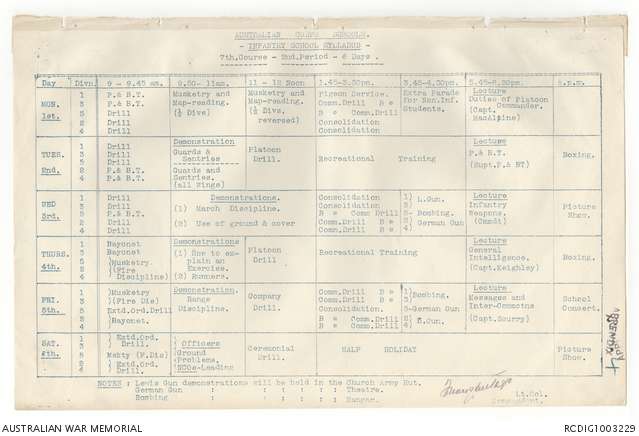 AUSTRALIAN CORPS SCHOOLS.
- INFANTRY SCHOOL SYLLABUS -
7th.Course - 2nd.Period - 6 Days.
Day Divn. 9 - 9.45 am. 9.50- 11am. 11 - 12 Noon 1.45-3.30pm. 3.45-4.30pm. 5.45-6.30pm. 8.p.m.
MON. 1st.
1 P.& B.T.
3 P.& B.T.
5 Drill
2 Drill
4 Drill
Musketry and
Map-reading.
(½ Divs)
Musketry and
Map-reading.
(½ Divs,
reversed)
Pigeon Service.
Comm.Drill B e
B e Comm.Drill
Consolidation
Consolidation
Extra Parade
for Non.Inf.
Students.
Lecture
Duties of Platoon
Commander.
(Capt.
MacAlpine)
TUES. 2nd.
1 Drill
3 Drill
5 Drill
2 P.& B.T.
4 P.& B.T.
Demonstration
Guards &
Sentries
Guards and
Sentries.
(all Wings)
Platoon
Drill.
Recreational Training
Lecture
P.& B.T.
(Supt.P.& BT)
Boxing.
WED 3rd.
1 Drill
3 Drill
5 P.& B.T.
2 Drill
4 Drill
Demonstrations.
(1) March Discipline.
(2) Use of ground & cover
Consolidation
Consolidation
B e Comm Drill
Comm.Drill B e
Comm.Drill B e
1)
3) L.Gun.
5- Bombing.
2) German Gun
4)
Lecture
Infantry
Weapons.
(Comdt)
Picture
Show.
THURS. 4th.
1 Bayonet
3 Bayonet
5 )Musketry
2 )(Fire
4 )Discipline)
Demonstrations
(1) One to ex-
plain an
Exercise.
(2) Runners.
Platoon
Drill
Recreational Training
Lecture
General
Intelligence.
(Capt.Keighley)
Boxing.
FRI. 5th.
1 )Musketry
3 )(Fire Dis)
5 Extd.Ord.Drill
2 )Bayonet.
4
Demonstration.
Range
Discipline.
Company
Drill
Comm.Drill B e
Comm.Drill B e
Consolidation.
B e Comm.Drill
B e Comm.Drill
1)Bombing.
3)
5-German Gun
2)
4) L.Gun.
Lecture
Messages and
Inter-Commcins
(Capt.Scurry)
School
Concert.
SAT. 6th.
1 ) Extd.Ord.
3 ) Drill.
5 Mskty (F.Dis)
2 ) Extd.Ord.
4 ) Drill.
) Officers
)Ground
Problems.
)NCOs-Leading
Ceremonial
Drill.
HALF HOLIDAY
Picture
Show.
NOTES : Lewis Gun demonstrations will be held in the Church Army Hut.
German Gun : : : : : Theatre.
Bombing : : : : : Hangar.
Lt.Col.
Commandant.
APPENDIX 4
AUSTRALIAN WAR MEMORIAL
RCDIG1003229